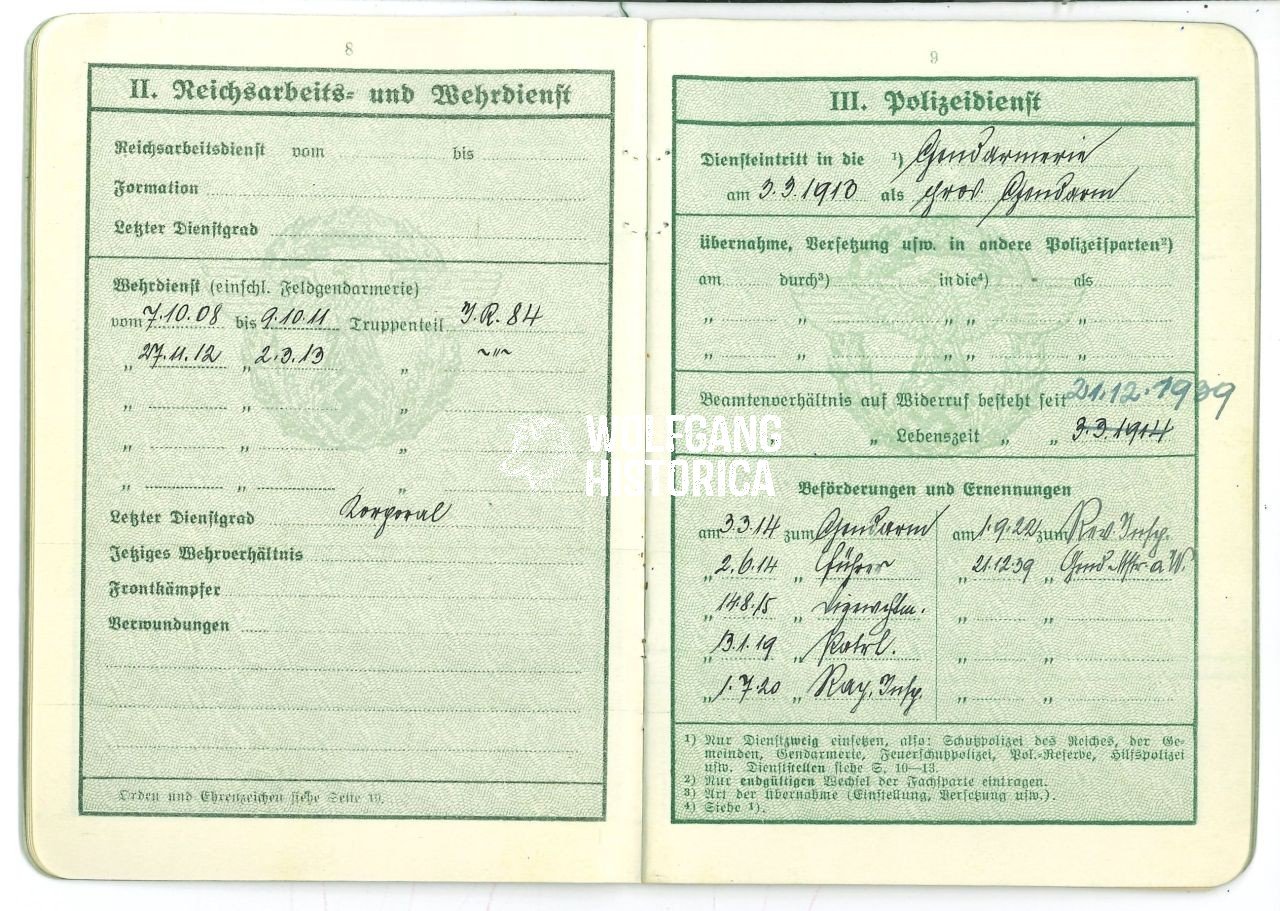 8
II. Reichsarbeits- und Wehrdienst
Reichsarbeitsdienst vom bis
Formation
Letzter Dienstgrad
Wehrdienst (einschl. Feldgendarmerie)
vom 7.10.08 bis 9.10.11 Truppenteil I.R. 84
„ 27.11.12 „ 2.3.13 „ ~"~
„ „ „
„ „ „
„ „ „
Letzter Dienstgrad Korporal
Jetziges Wehrverhältnis
Frontkämpfer
Verwundungen
Orden und Ehrenzeichen siehe Seite 19.
9
III. Polizeidienst
Diensteintritt in die ¹) Gendarmerie
am 3.3.1913 als prov. Gendarm
Übernahme, Versetzung usw. in andere Polizeisparten²)
am durch³) in die⁴) als
„ „ „ „ „
„ „ „ „ „
Beamtenverhältnis auf Widerruf besteht seit 21.12.1939
„ „ Lebenszeit „ „ 3.3.1914
Beförderungen und Ernennungen
am 3.3.14 zum Gendarm
„ 2.6.14 „ Führer
„ 14.8.15 „
„ 13.1.19 „ Patrl.
„ 1.7.20 „ Ray. Insp.
am 1.9.22 zum Rev. Insp.
„ 21.12.39 „ Gend. Mstr. a. W.
„ „
„ „
„ „
¹) Nur Dienstzweig einsetzen, also: Schutzpolizei des Reiches, der Ge-
meinden, Gendarmerie, Feuerschutzpolizei, Pol.-Reserve, Hilfspolizei
usw. Dienststellen siehe S. 10—13.
²) Nur endgültigen Wechsel der Fachsparte eintragen.
³) Art der Übernahme (Einstellung, Versetzung usw.).
⁴) Siehe ¹).
WOLFGANG
HISTORICA